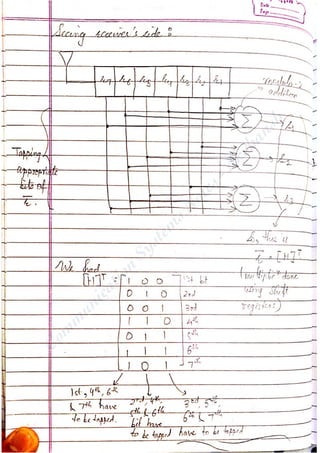 Seeing receiver's side :
r7 r6 r5 r4 r3 r2 r1
modulo-2
addition
Σ
Σ
Σ
Tapping
appropriate
bits of
r.
So, this is
r * [H]^T
using shift
registers)
We had
[H]^T = 1 0 0 1st bit
0 1 0 2nd
0 0 1 3rd
1 1 0 4th
0 1 1 5th
1 1 1 6th
1 0 1 7th
1st, 4th, 6th
& 7th have
to be tapped.
2nd, 4th,
5th & 6th
bit have
to be tapped
3rd, 5th
6th & 7th
have to be tapped